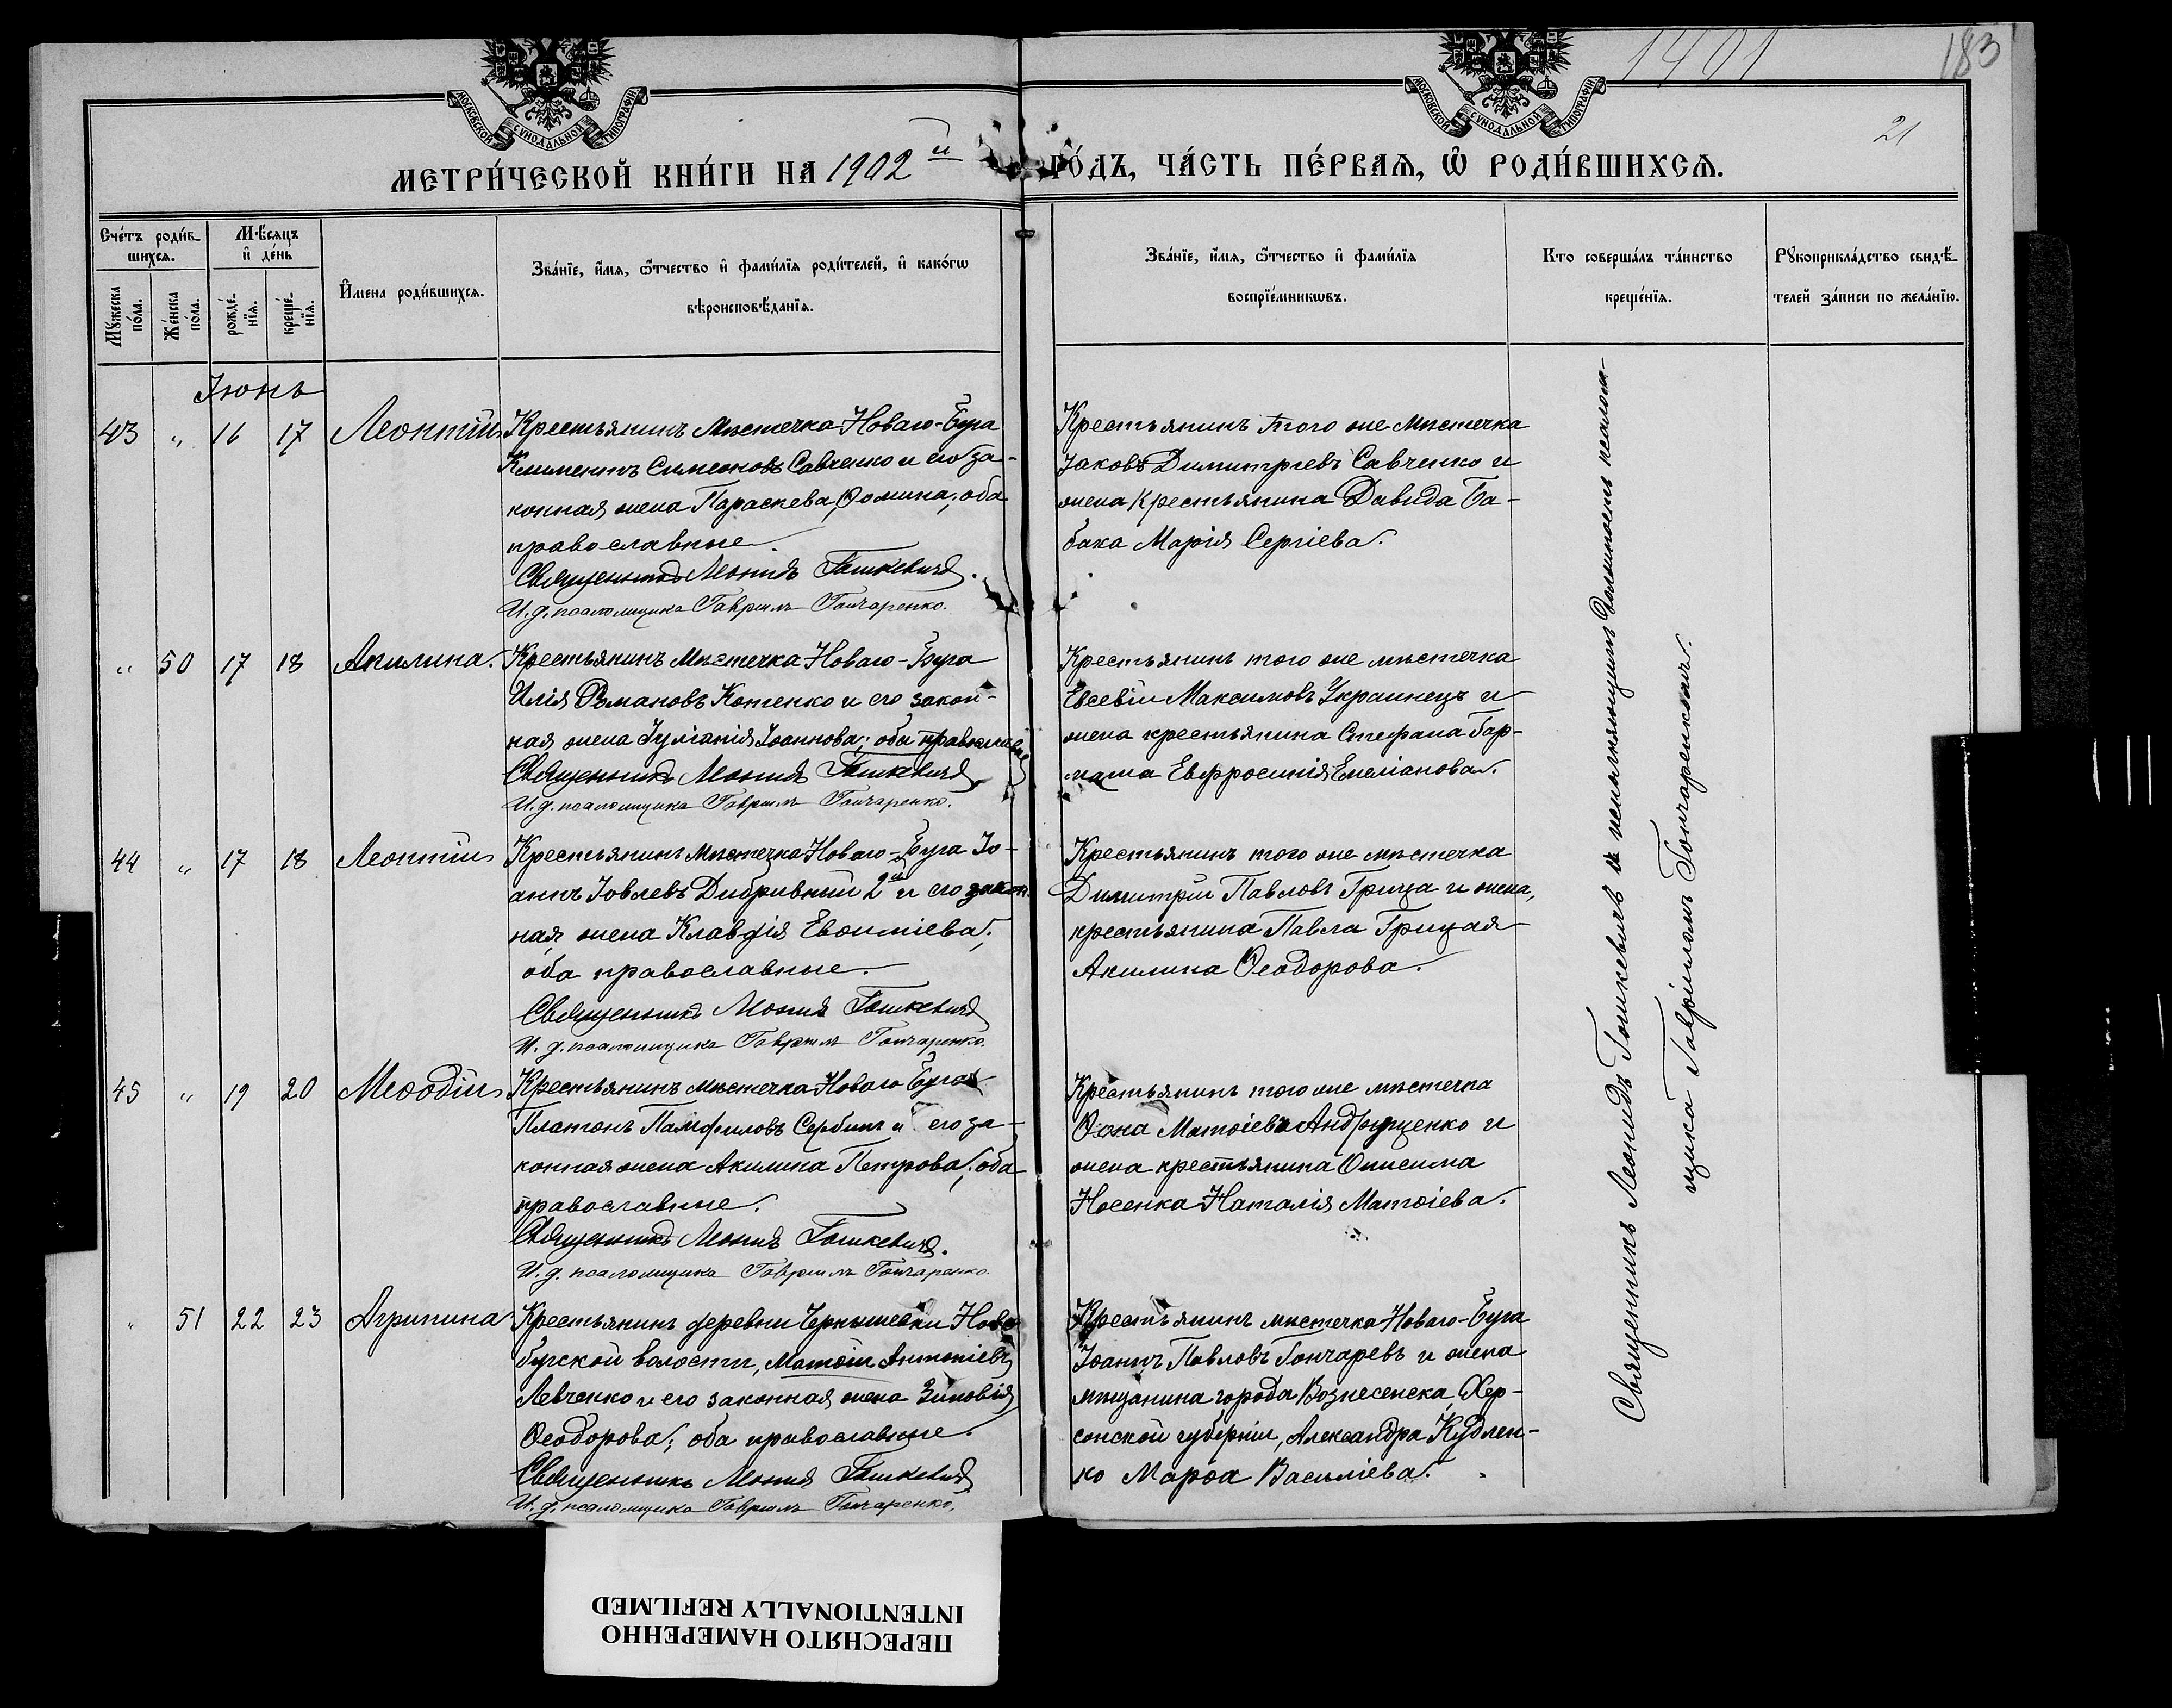 1401
183
21
МОСКОВСКОЙ СѴНОДАЛЬНОЙ ТИПОГРАФІИ
МОСКОВСКОЙ СѴНОДАЛЬНОЙ ТИПОГРАФІИ
МЕТРИ́ЧЕСКОЙ КНИ́ГИ НА 1902й ГО́ДЪ, ЧА́СТЬ ПЕ́РВАѦ, Ѽ РОДИ́ВШИХСѦ.
Счéтъ роди́в-
шихсѧ.
Мꙋ́жеска по́ла.
Же́нска по́ла.
Мѣ́сѧцъ и҆ де́нь
рожде́-нїѧ.
креще́-нїѧ.
И҆мена роди́вшихсѧ.
Зва́нїе, и҆́мѧ, ѻ҆́тчество и҆ фами́лїѧ роди́телей, и҆ како́гѡ
вѣроисповѣ́данїѧ.
Зва́нїе, и҆́мѧ, ѻ҆́тчество и҆ фами́лїѧ
воспрїе́мникѡвъ.
Кто соверша́лъ та́инство
креще́нїѧ.
Рꙋкоприкла́дство свидѣ́-
телей за́писи по жела́нїю.
Іюнь
43 " 16 17 Леонтій
Крестьянинъ Мѣстечка Новаго-Буга
Климентъ Симеоновъ Савченко и его за-
конная жена Параскева Ѳомина; оба
православные.
Священникъ Леонидъ Гошкевичъ.
И. д. псаломщика Гавріилъ Гончаренко.
Крестьянинъ того же мѣстечка
Іаковъ Димитріевъ Савченко и
жена крестьянина Давида Ба-
бака Марія Сергіева.
" 50 17 18 Акилина.
Крестьянинъ Мѣстечка Новаго-Буга
Илія Романовъ Котенко и его закон-
ная жена Іуліанія Іоаннова; оба православные
Священникъ Леонидъ Гошкевичъ
И. д. псаломщика Гавріилъ Гончаренко.
Крестьянинъ того же мѣстечка
Евсевій Максимовъ Украинецъ и
жена крестьянина Стефана Гар-
маша Евфросинія Емеліанова.
44 " 17 18 Леонтій
Крестьянинъ Мѣстечка Новаго-Буга Іо-
аннъ Іовлевъ Дибривный 2й и его закон-
ная жена Клавдія Евѳиміева;
оба православные.
Священникъ Леонидъ Гошкевичъ
И. д. псаломщика Гавріилъ Гончаренко.
Крестьянинъ того же мѣстечка
Димитрій Павловъ Грицай и жена,
крестьянина Павла Грицая
Акилина Ѳеодорова.
45 " 19 20 Меѳодій
Крестьянинъ мѣстечка Новаго Буга
Платонъ Памфиловъ Сербинъ и его за-
конная жена Акилина Петрова; оба
православные.
Священникъ Леонидъ Гошкевичъ.
И. д. псаломщика Гавріилъ Гончаренко.
Крестьянинъ того же мѣстечка
Ѳома Матѳіевъ Андрущенко и
жена крестьянина Онисима
Носенка Наталія Матѳіева.
" 51 22 23 Агрипина
Крестьянинъ деревни Чернышевки Ново-
бугской волости, Матѳій Антоніевъ
Левченко и его законная жена Зиновія
Ѳеодорова; оба православные.
Священникъ Леонидъ Гошкевичъ
И. д. псаломщика Гавріилъ Гончаренко.
Крестьянинъ мѣстечка Новаго-Буга
Іоаннъ Павловъ Гончаревъ и жена
мѣщанина города Вознесенска, Хер-
сонской губерніи, Александра Кудлен-
ко Марѳа Василіева.
Священникъ Леонидъ Гошкевичъ съ исполняющимъ должность псалом-
щика Гавріиломъ Гончаренкомъ.
ПЕРЕСНЯТО НАМЕРЕННО
INTENTIONALLY REFILMED